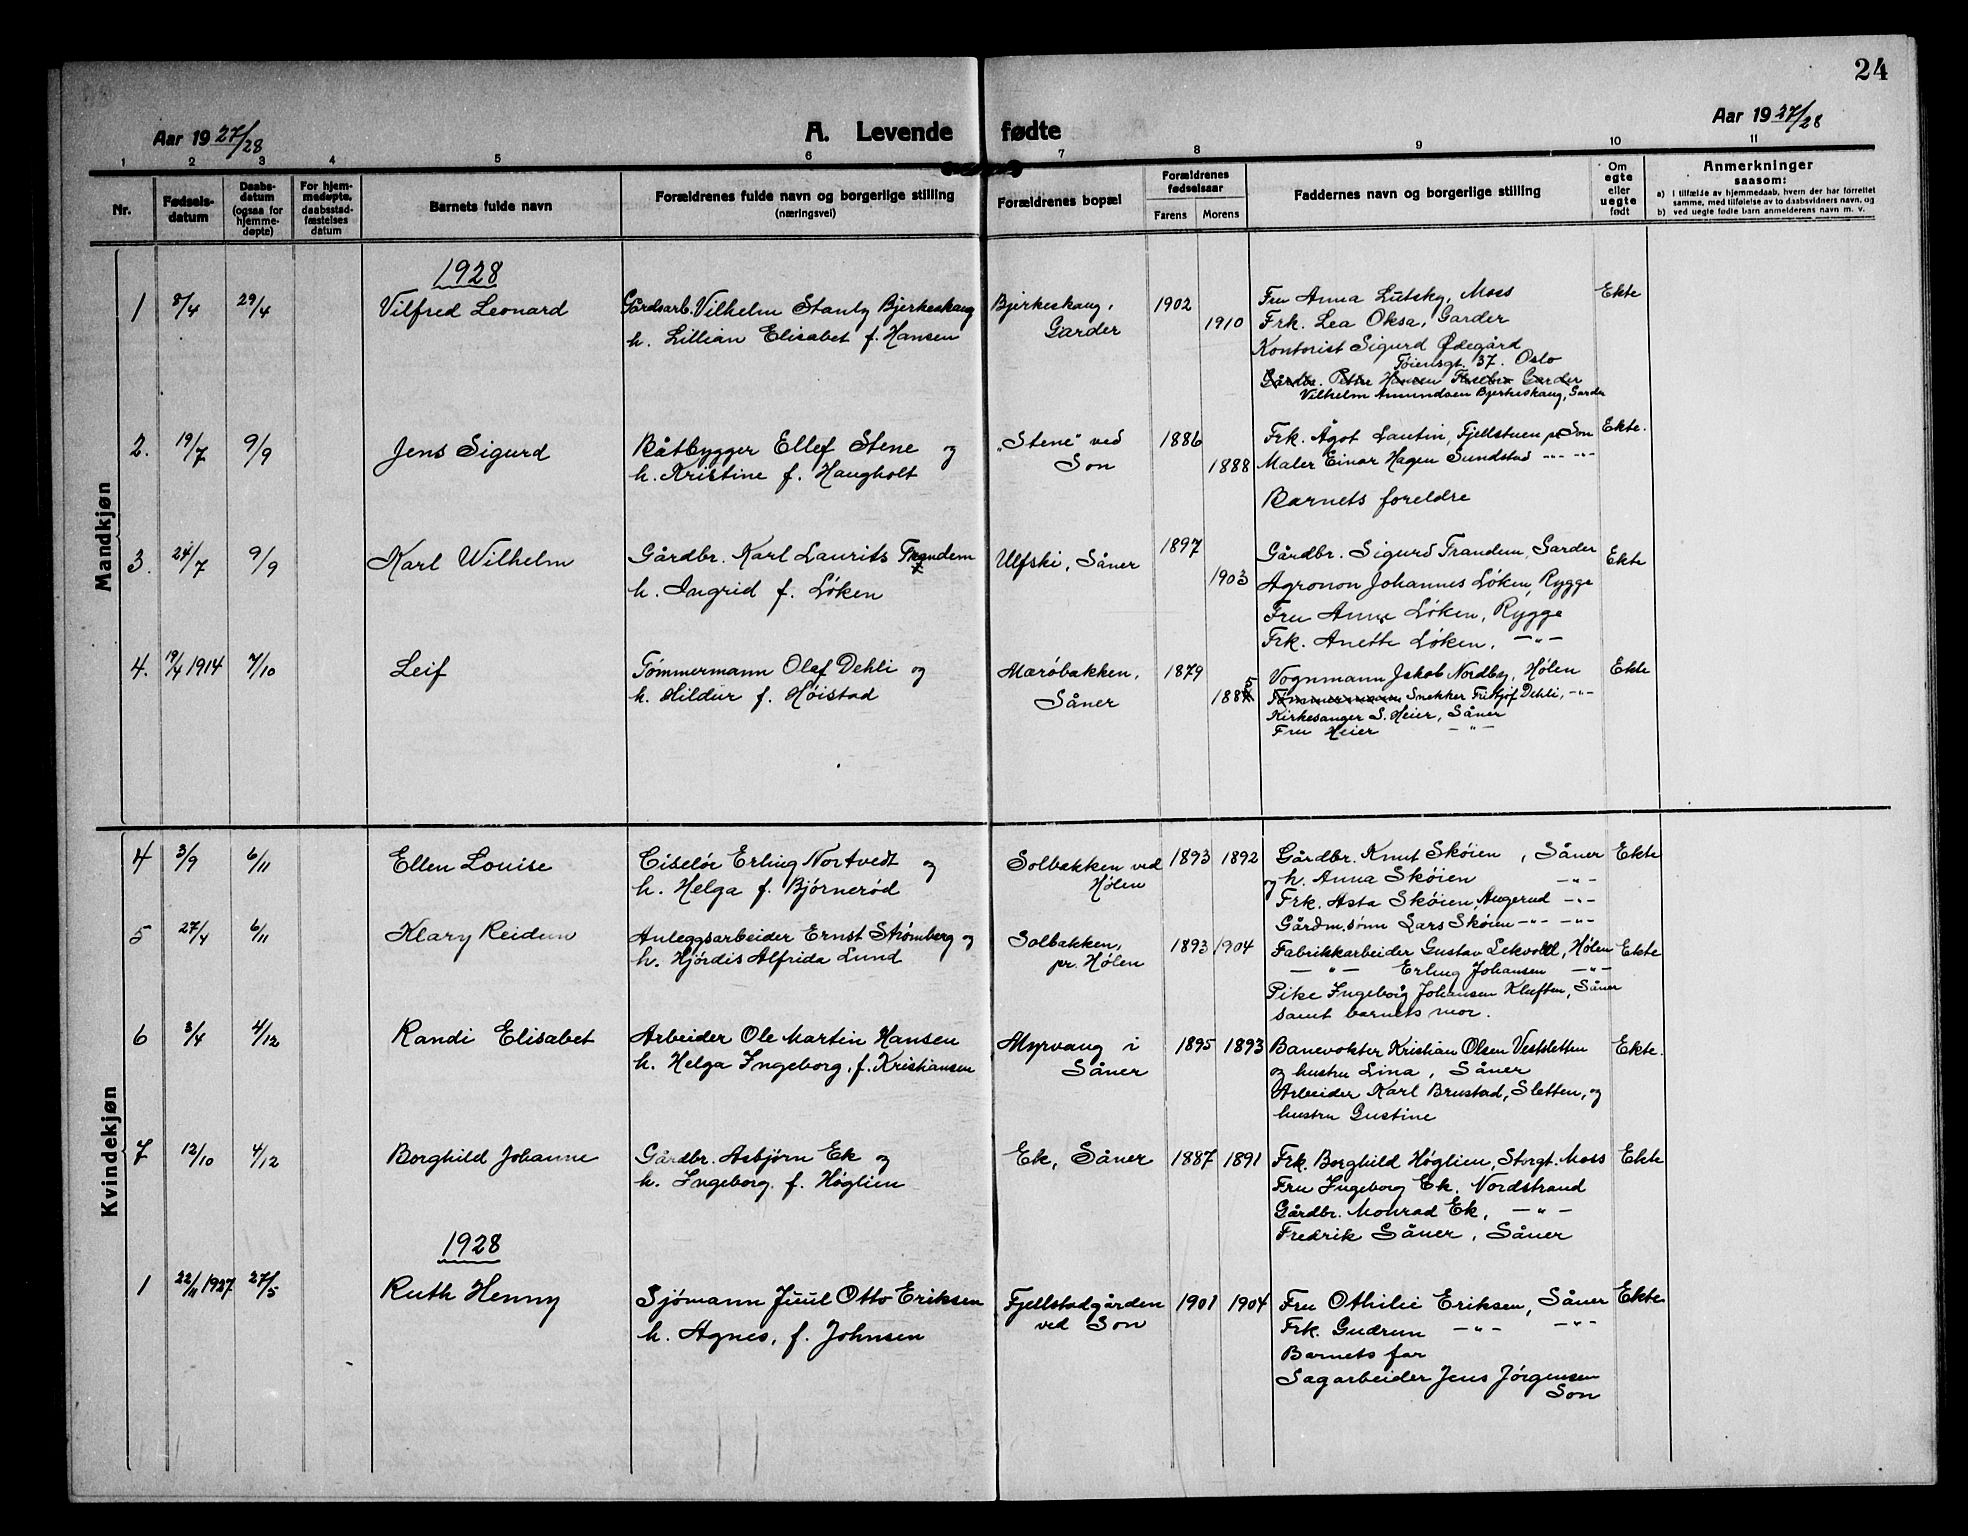 24
Aar 1927/28
A. Levende fødte
Aar 1927/28
1 2 3 4 5 6 7 8 9 10 11
Nr.
Fødsels-
datum
Daabs-
datum
(ogsaa for
hjemme-
døpte)
For hjem-
medøpte,
daabsstad-
fæstelses
datum
Barnets fulde navn
Forældrenes fulde navn og borgerlige stilling
(næringsvei)
Forældrenes bopæl
Forældrenes
fødselsaar
Farens Morens
Faddernes navn og borgerlige stilling
Om
egte
eller
uegte
født
Anmerkninger
saasom:
a) i tilfælde av hjemmedaab, hvem der har forrettet
samme, med tilføielse av to daabsvidners navn, og
b) ved uegte fødte barn anmelderens navn m. v.
Mandkjøn
1928
1 8/4 29/4 Vilfred Leonard
Gårdsarb. Vilhelm Stanly Bjerkeskaug
h. Lillian Elisabet f. Hansen
Bjerkeskaug,
Garder
1902
1910
Fru Anna Lutsky, Moss
Frk. Lea Oksa, Garder
Kontorist Sigurd Ødegård
Tøiensgt. 37. Oslo
Gårdbr. Petter Hansen Garder
Vilhelm Amundsen Bjerkeskaug, Garder
Ekte
2. 19/7 9/9 Jens Sigurd
Båtbygger Ellef Stene og
h. Kristine f. Haugholt
"Stene" ved
Son
1886
1888
Frk. Ågot Lautin, Fjellstuen pr Son
Maler Einar Hagen Sundstad -"- -"-
Barnets foreldre
Ekte.
3. 24/7 9/9 Karl Wilhelm
Gårdbr. Karl Laurits Trandem
h. Ingrid f. Løken
Ulfski, Såner
1897
1903
Gårdbr. Sigurd Trandem, Garder
Agronon Johannes Løken, Rygge
Fru Anne Løken, Rygge
Frk. Anette Løken, -"-
Ekte
4. 19/4 1914 7/10 Leif
Tømmermann Olaf Dehli og
h. Hildur f. Høistad
Mørøbakken,
Såner
1879
1885
Vognmann Jakob Nordby, Hølen
Tømmermann Snekker Fridtjof Dehli, -"-
Kirkesanger S. Heier, Såner
Fru Heier -"-
Ekte
Kvindekjøn
4 3/9 6/11 Ellen Louise
Ciselør Erling Nortvedt og
h. Helga f. Bjørnerød
Solbakken ved
Hølen
1893 1892
Gårdbr. Knut Skøien, Såner
og h. Anna Skøien -"-
Frk. Asta Skøien, Augerud -"-
Gårdm.sønn Lars Skøien -"- -"-
Ekte
5 27/4 6/11 Klary Reidun
Anleggsarbeider Ernst Strømberg og
h. Hjørdis Alfrida Lund
Solbakken,
pr. Hølen
1893 1904
Fabrikkarbeider Gustav Lekvold, Hølen
-"- Erling Johansen -"-
Pike Ingeborg Johansen Kluften, Såner
samt barnets mor.
Ekte
6 3/4 4/12 Randi Elisabet
Arbeider Ole Martin Hansen
h. Helga Ingeborg, f. Kristiansen
Myrvang i
Såner
1895 1893
Banevokter Kristian Olsen Vestsletten
og hustru Lina, Såner
Arbeider Karl Brustad, Sletten, og
hustru Gustine
Ekte.
7 12/10 4/12 Borghild Johanne
Gårdbr. Asbjørn Ek og
h. Ingeborg. f. Høglien
Ek, Såner
1887 1891
Frk. Borghild Høglien, Storgt. Moss
Fru Ingeborg Ek, Nordstrand
Gårdbr. Monrad Ek, -"-
Fredrik Såner, Såner
Ekte
1928
1 22/11 1927 27/5 Ruth Henny
Sjømann Juul Otto Eriksen
h. Agnes, f. Johnsen
Fjellstadgården
ved Son
1901 1904
Fru Othilie Eriksen, Såner
Frk. Gudrun -"- -"-
Barnets far
Sagarbeider Jens Jørgensen
Son
Ekte